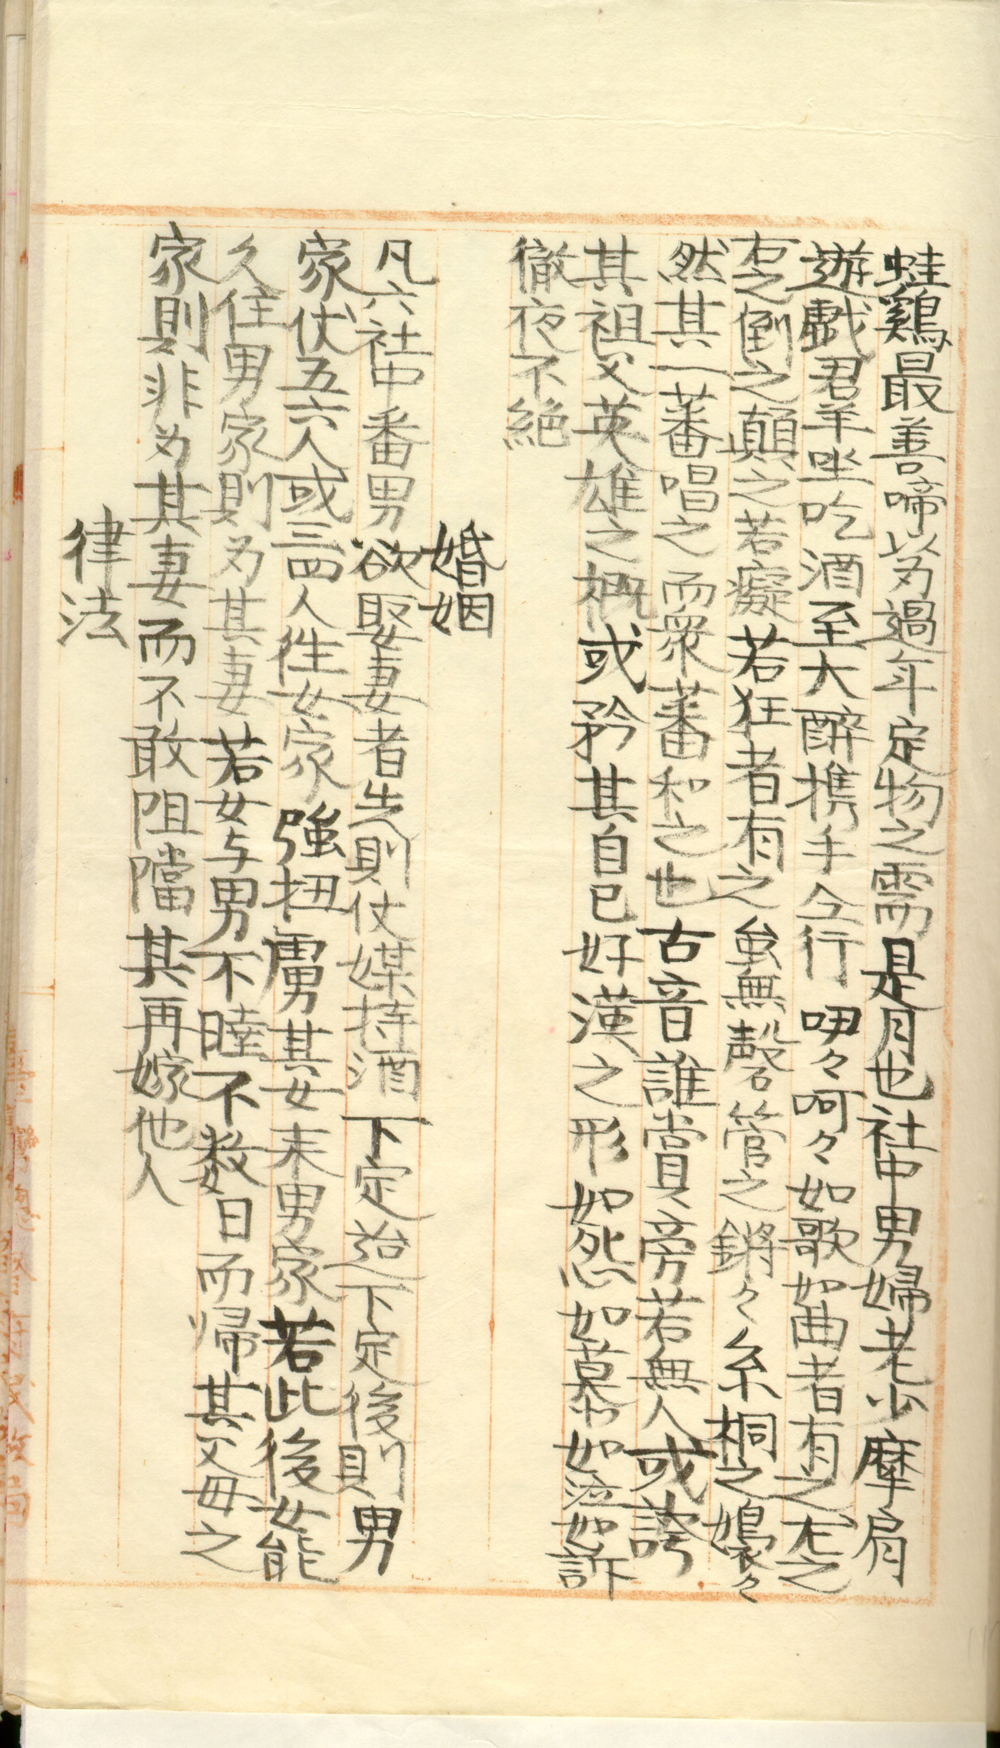 蛙鷄最善啼以为過年定物之需是月也社中男婦老少摩肩
遊戱君羊坐吃酒至大醉携手仝行吚々呵々如歌如曲者有之左之
右之倒之顛之若癡若狂者有之虽無磬管之鏘々糸桐之嬝々
然其一蕃唱之而衆蕃和之也古音誰賞旁若無人或誇
其祖父英雄之概或矜其自己好漢之形如怨如慕如泣如訴
徹夜不絶
婚姻
凡六社中番男欲娶妻者先則仗媒持酒下定迨下定後則男
家仗五六人或三四人徃女家強扭虜其女来男家若此後女能
久住男家則为其妻若女与男不睦不数日而帰其父毋之
家則非为其妻而不敢阻擋其再嫁他人
律法